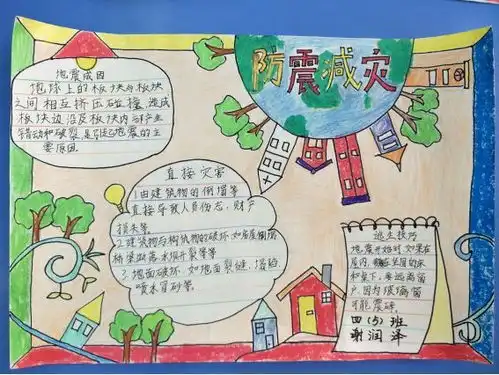 防震减灾
地震成因
地球上的板块与板块
之间相互挤压碰撞,造成
板块边沿及板块内部产生
错动和破裂,是引起地震的主
要原因
直接灾害
1.由建筑物的倒塌等
直接导致人员伤亡,财产
损失等
2.建筑物与构筑物的破坏,如房屋倒塌
桥梁断落水坝开裂等等
3.地面破坏,如地面裂缝,塌陷
喷水冒砂等.
逃生技巧
地震开始时,如果在
屋内,
和桌下,要远离窗
户,因为玻璃窗
可能震碎.
四(5)班
谢润泽